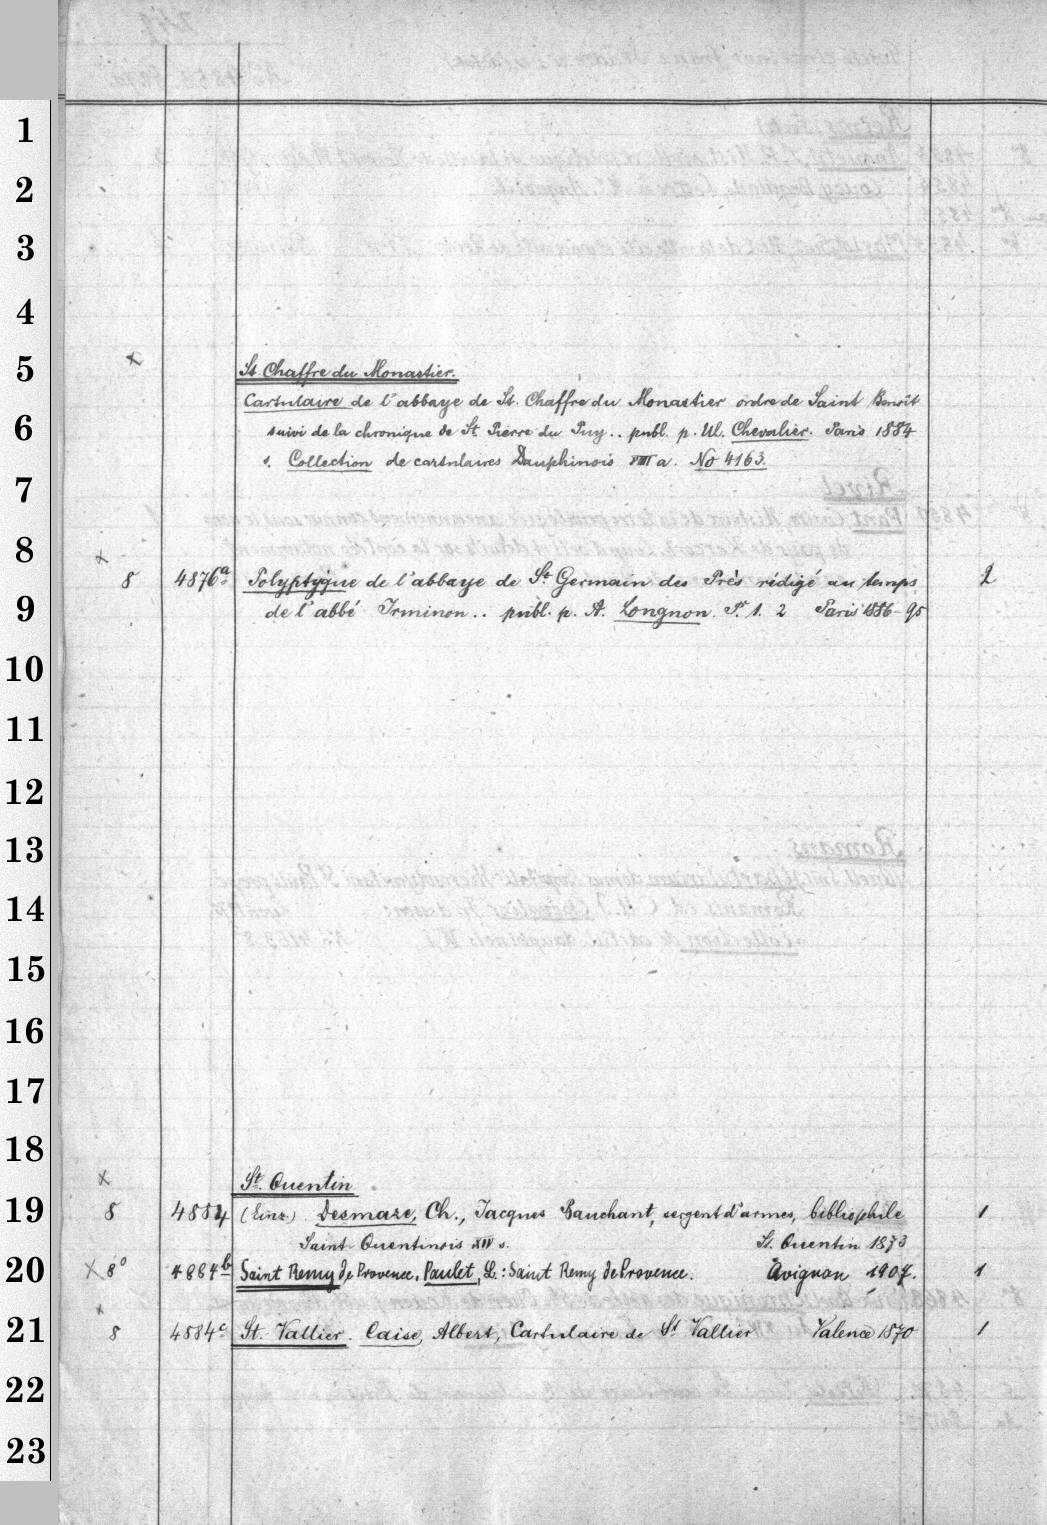 1
2
3
4
5
St. Chaffre du Monastier.
Cartulaire de l'abbaye de St. Chaffre du Monastier ordre de Saint Benoît
6
suivi de la chronique de St Pierre du Puy.. publ. p. Ul. Chevalier. Paris 1884
s. Collection de cartulaires Dauphinois VIII a. No 4163.
7
8
8 4876a Polyptyque de l'abbaye de St Germain des Près rédigé au temps 2
9
de l'abbé Irminon.. publ. p. A. Longnon. P. 1. 2 Paris 1886-95
10
11
12
13
14
15
16
17
18
St. Quentin
19
8 4884 (Einz.) Desmaze, Ch., Jacques Bauchant, sergent d'armes, bibliophile 1
Saint-Quentinois XIV s. St. Quentin 1873
20
X 8° 4884b Saint Remy de Provence. Paulet, L.: Saint Remy de Provence. Avignon 1907. 1
21
8 4884c St. Vallier. Caise, Albert, Cartulaire de St Vallier Valence 1870 1
22
23